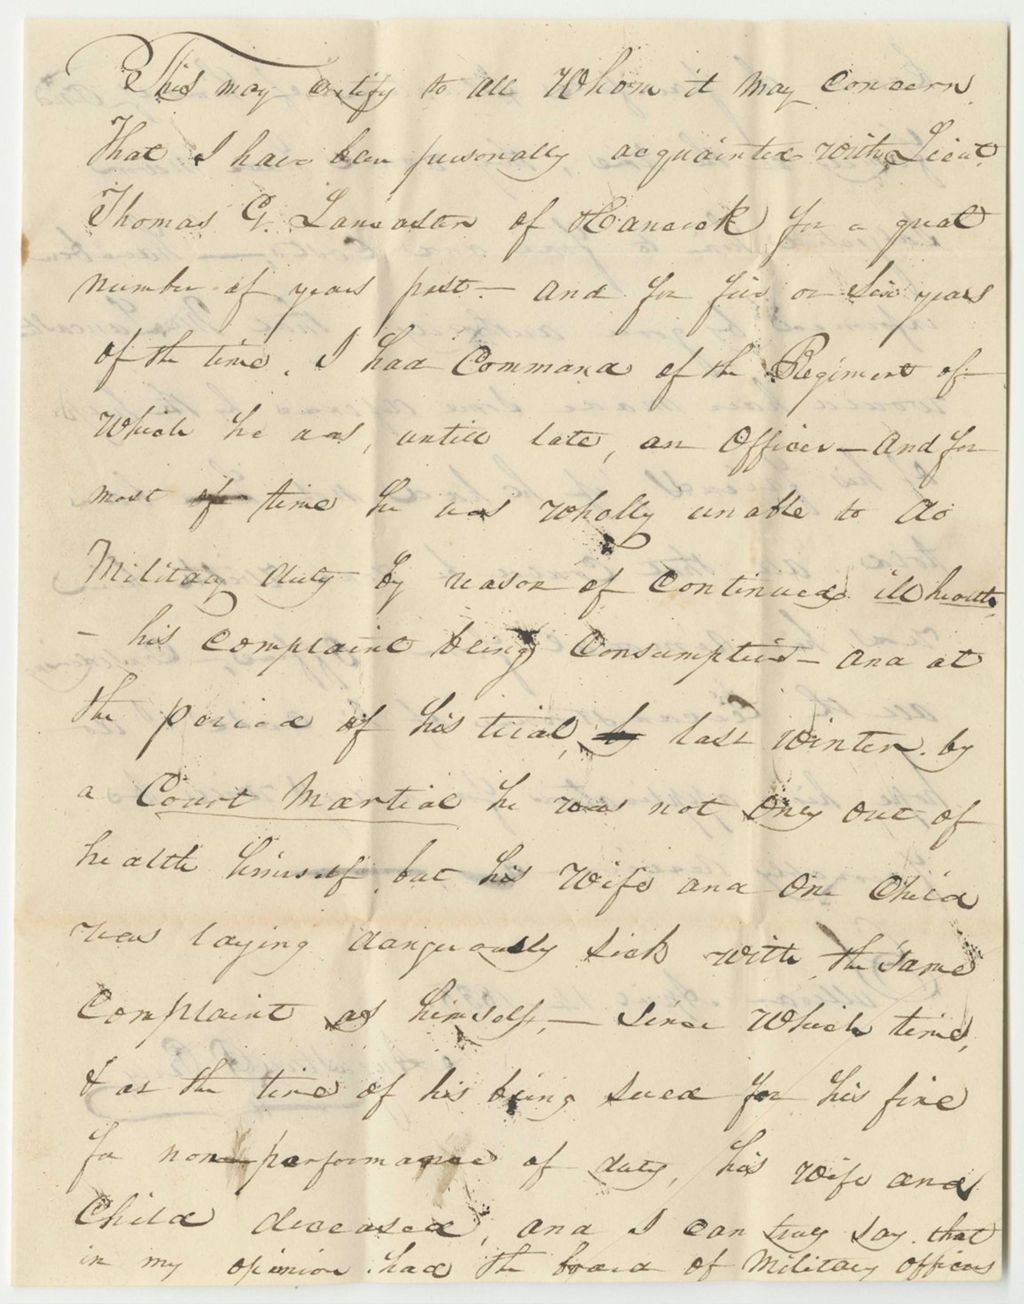 This may certify to all Whom it may Concern
That I have been personally acquainted with Lieut.
Thomas G. Lancaster of Hancock for a great
number of years past — and for five or six years
of the time, I had Command of the Regiment of
Which he was, untill late, an Officer — And for
most of time he was Wholly unable to do
Military duty by reason of Continued ill health,
— his Complaint being Consumption — and at
the period of his trial, by last winter by
a Court Martial he was not only out of
health himself, but his Wife and one Child
was laying dangerously sick with the same
Complaint as himself, — since Which time,
& at the time of his being sued for his fine
for non-performance of duty, his wife and
Child deceased, and I can truly say that
in my opinion had the board of Military officers